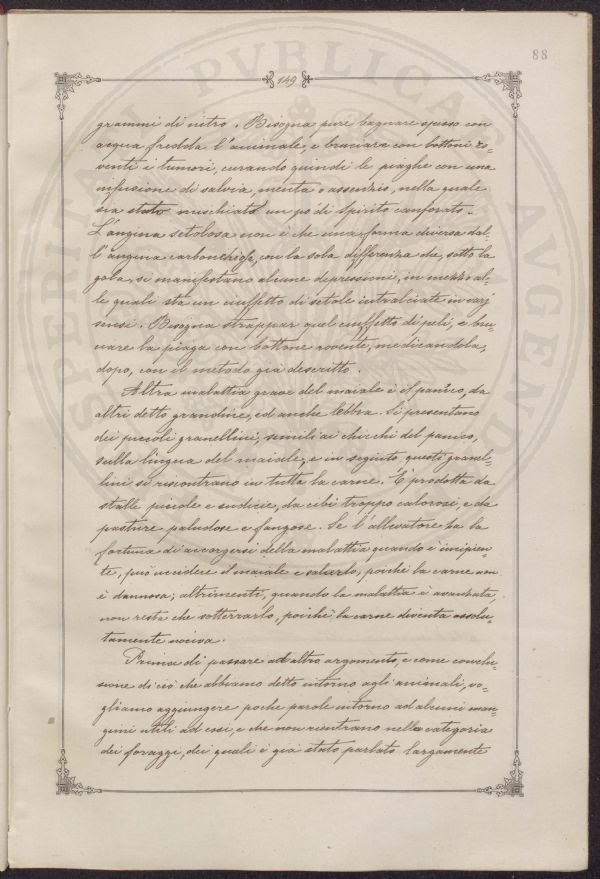 88
149
grammi di nitro. Bisogna pure bagnare spesso con
acqua fredda l'animale, e bruciare con bottoni ro-
venti i tumori, curando quindi le piaghe con una
infusione di salvia, menta o assenzio, nella quale
sia stato mischiato un pò di spirito canforato.
L'angina setolosa non è che una forma diversa dal-
l'angina carbonchiosa, con la sola differenza che, sotto la
gola, si manifestano alcune depressioni, in mezzo al-
le quali sta un ciuffetto di setole intralciate in varj
sensi. Bisogna strappar quel ciuffetto di peli, e bru-
ciare la piaga con bottone rovente, medicandola,
dopo, con il metodo già descritto.
Altra malattia grave del maiale è il panico, da
altri detto grandine, ed anche lebbra. Si presentano
dei piccoli granellini, simili ai chicchi del panico,
sulla lingua del maiale, e in seguito, questi granel-
lini si riscontrano in tutta la carne. È prodotta da
stalle piccole e sudicie, da cibi troppo calorosi, e da
pasture paludose e fangose. Se l'allevatore ha la
fortuna di accorgersi della malattia quando è incipien-
te, può uccidere il maiale e salarlo, poichè la carne non
è dannosa; altrimenti, quando la malattia è avanzata,
non resta che sotterrarlo, poichè la carne diventa assolu-
tamente nociva.
Prima di passare ad altro argomento, e come conclu-
sione di ciò che abbiamo detto intorno agli animali, vo-
gliamo aggiungere poche parole intorno ad alcuni man-
gimi utili ad essi, e che non rientrano nella categoria
dei foraggi, dei quali è già stato parlato largamente
PVBLICAE
AVGENDO